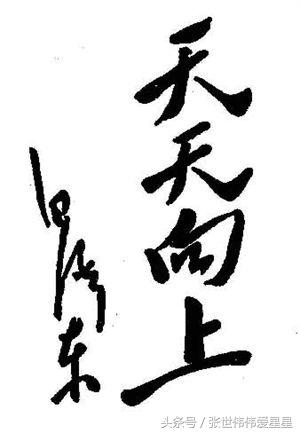 天天向上
毛泽东
头条号/张世伟伟爱星星